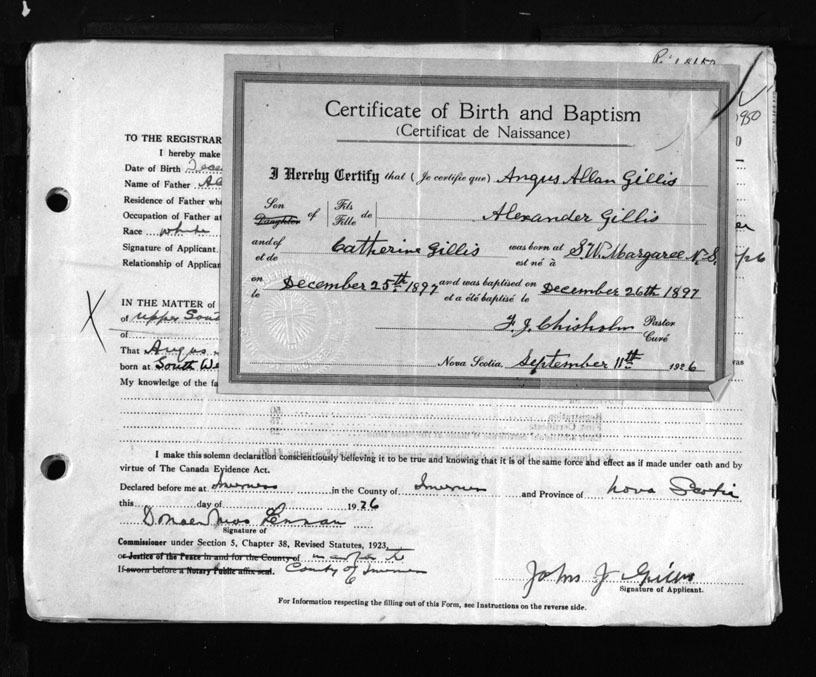 980
Certificate of Birth and Baptism
(Certificat de Naissance)
I Hereby Certify that (Je certifie que) Angus Allan Gillis
Son Daughter of Fils Fille de Alexander Gillis
and of et de Catherine Gillis was born at est né à S.W. Margaree N.S.
on le December 25th 1897 and was baptised on et a été baptisé le December 26th 1897
F. J. Chisholm Pastor Curé
Nova Scotia, September 11th 1926
TO THE REGISTRAR
I hereby make
Date of Birth
Name of Father
Residence of Father
Occupation of Father at
Race white
Signature of Applicant
Relationship of Applican
IN THE MATTER of
of Upper Sout
of
That Angus
born at South We was
My knowledge of the fa
I make this solemn declaration conscientiously believing it to be true and knowing that it is of the same force and effect as if made under oath and by
virtue of The Canada Evidence Act.
Declared before me at Inverness in the County of Inverness and Province of Nova Scotia
this day of 1926
Signature of
Commissioner under Section 5, Chapter 38, Revised Statutes, 1923,
or Justice of the Peace in and for the County of in and for the
If sworn before a Notary Public affix seal. County of Inverness
John J Gillis
Signature of Applicant.
For Information respecting the filling out of this Form, see Instructions on the reverse side.